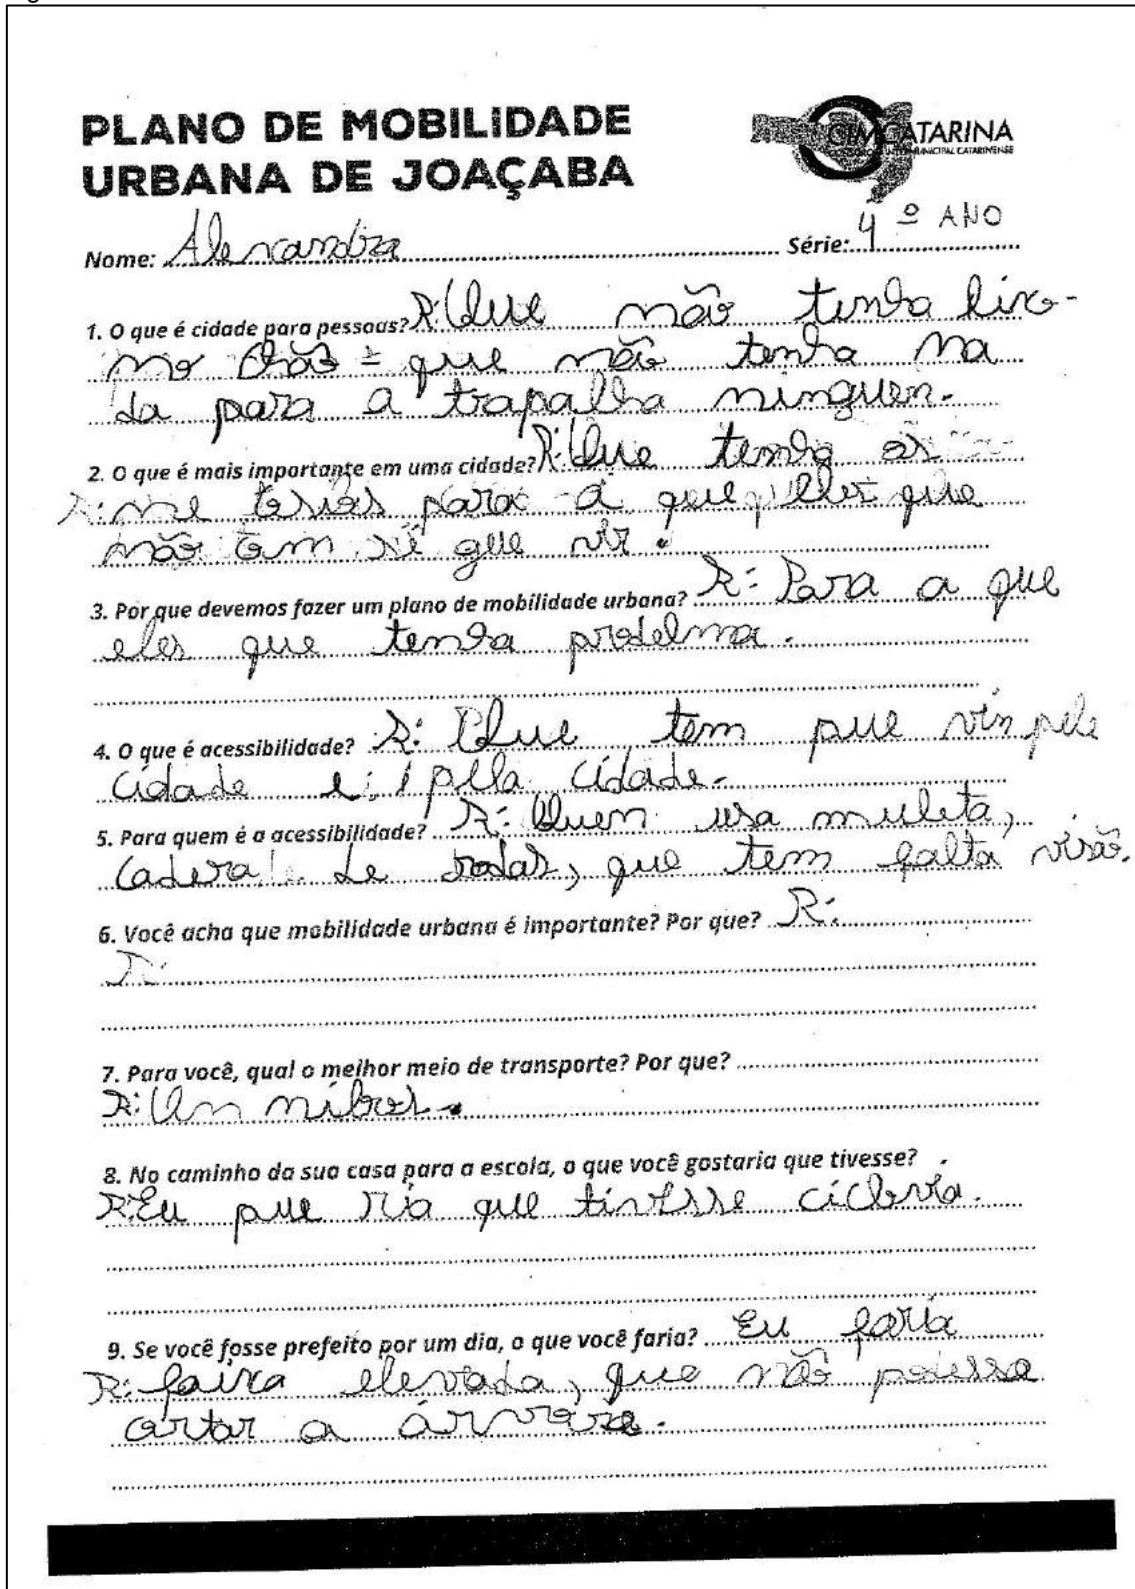 PLANO DE MOBILIDADE
URBANA DE JOAÇABA
CIMCATARINA
Nome: Alexandra Série: 4º ANO
1. O que é cidade para pessoas? R: Que não tenha lixo
no chão que não tenha na
da para a trapalha ninguen.
2. O que é mais importante em uma cidade? R: Que tenha as
R: para a que eles que
não vir.
3. Por que devemos fazer um plano de mobilidade urbana? R: Para a que
eles que tenha prodelma.
4. O que é acessibilidade? R: Que tem que vin pela
cidade e i pella cidade.
5. Para quem é a acessibilidade? R: Quen usa muleta,
cadera de rodas, que tem falta visão.
6. Você acha que mobilidade urbana é importante? Por que? R:
R:
7. Para você, qual o melhor meio de transporte? Por que?
R: Un nibus.
8. No caminho da sua casa para a escola, o que você gostaria que tivesse?
R: Eu que ria que tivesse ciclovia.
9. Se você fosse prefeito por um dia, o que você faria? Eu faria
R: faixa elevada, que não podesse
cortar a árvore.